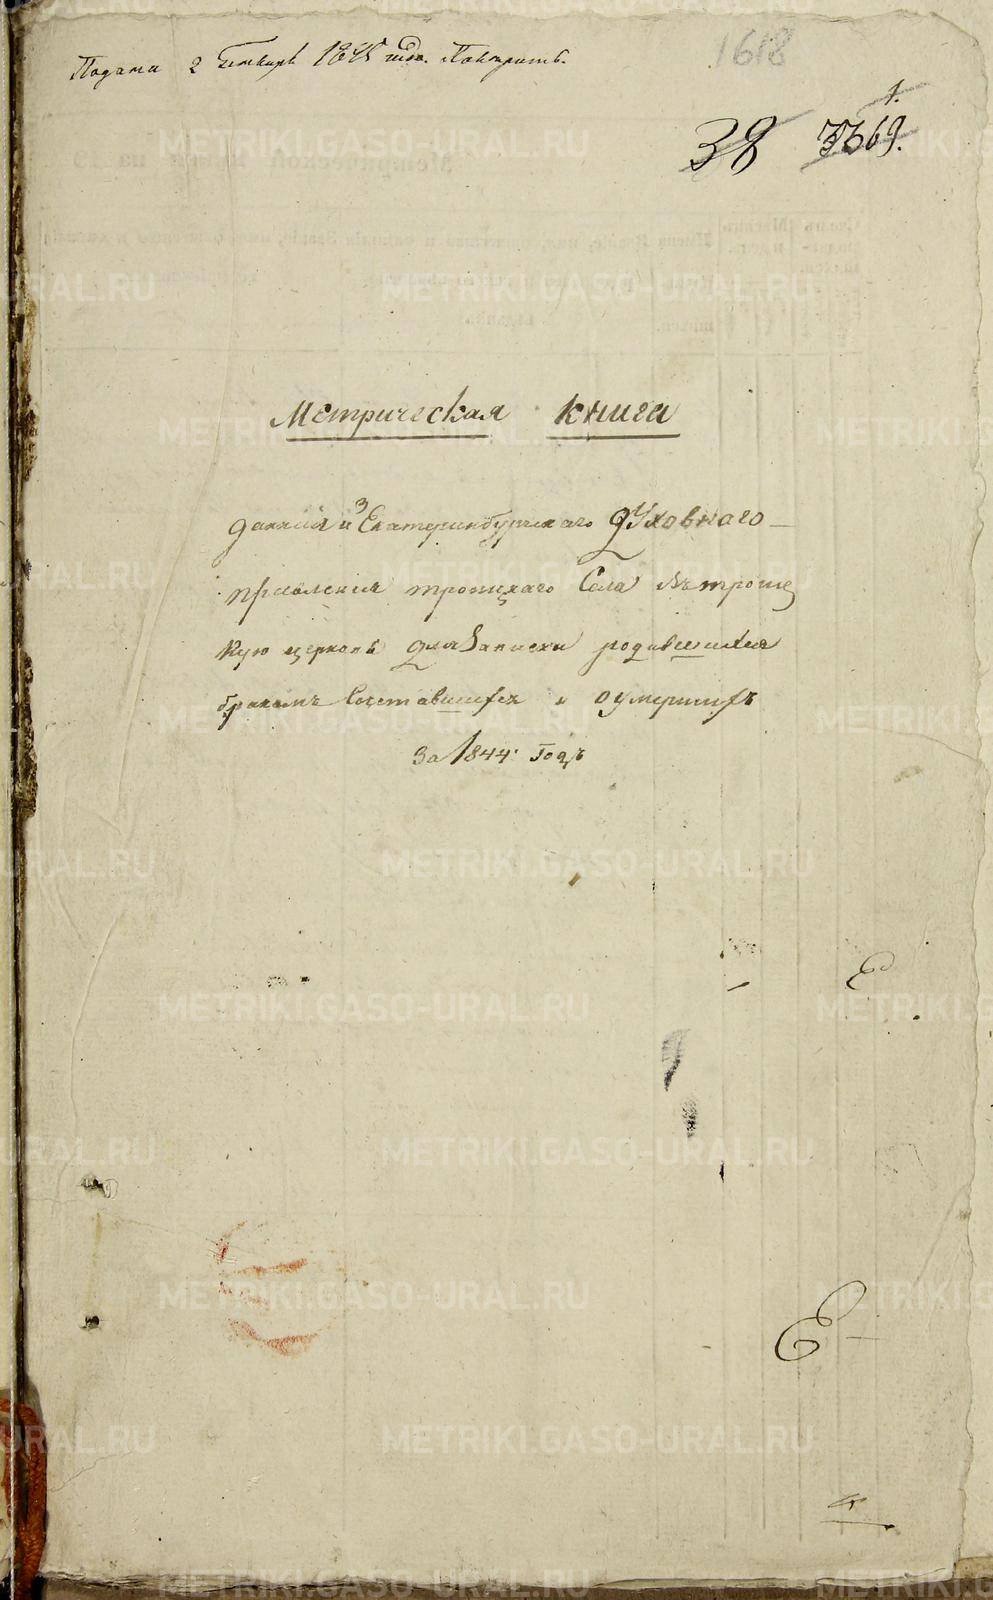 Подана 2 Генваря 1845 года.
1618
1.
38 3369.
Метрическая книга
данная из Екатеринбургскаго духовнаго
правления троицкаго Села въ троиц
кую церковь для Записки родившихся
бракомъ Сочетавшихся и оумершихъ
За 1844. Годъ
METRIKI.GASO-URAL.RU